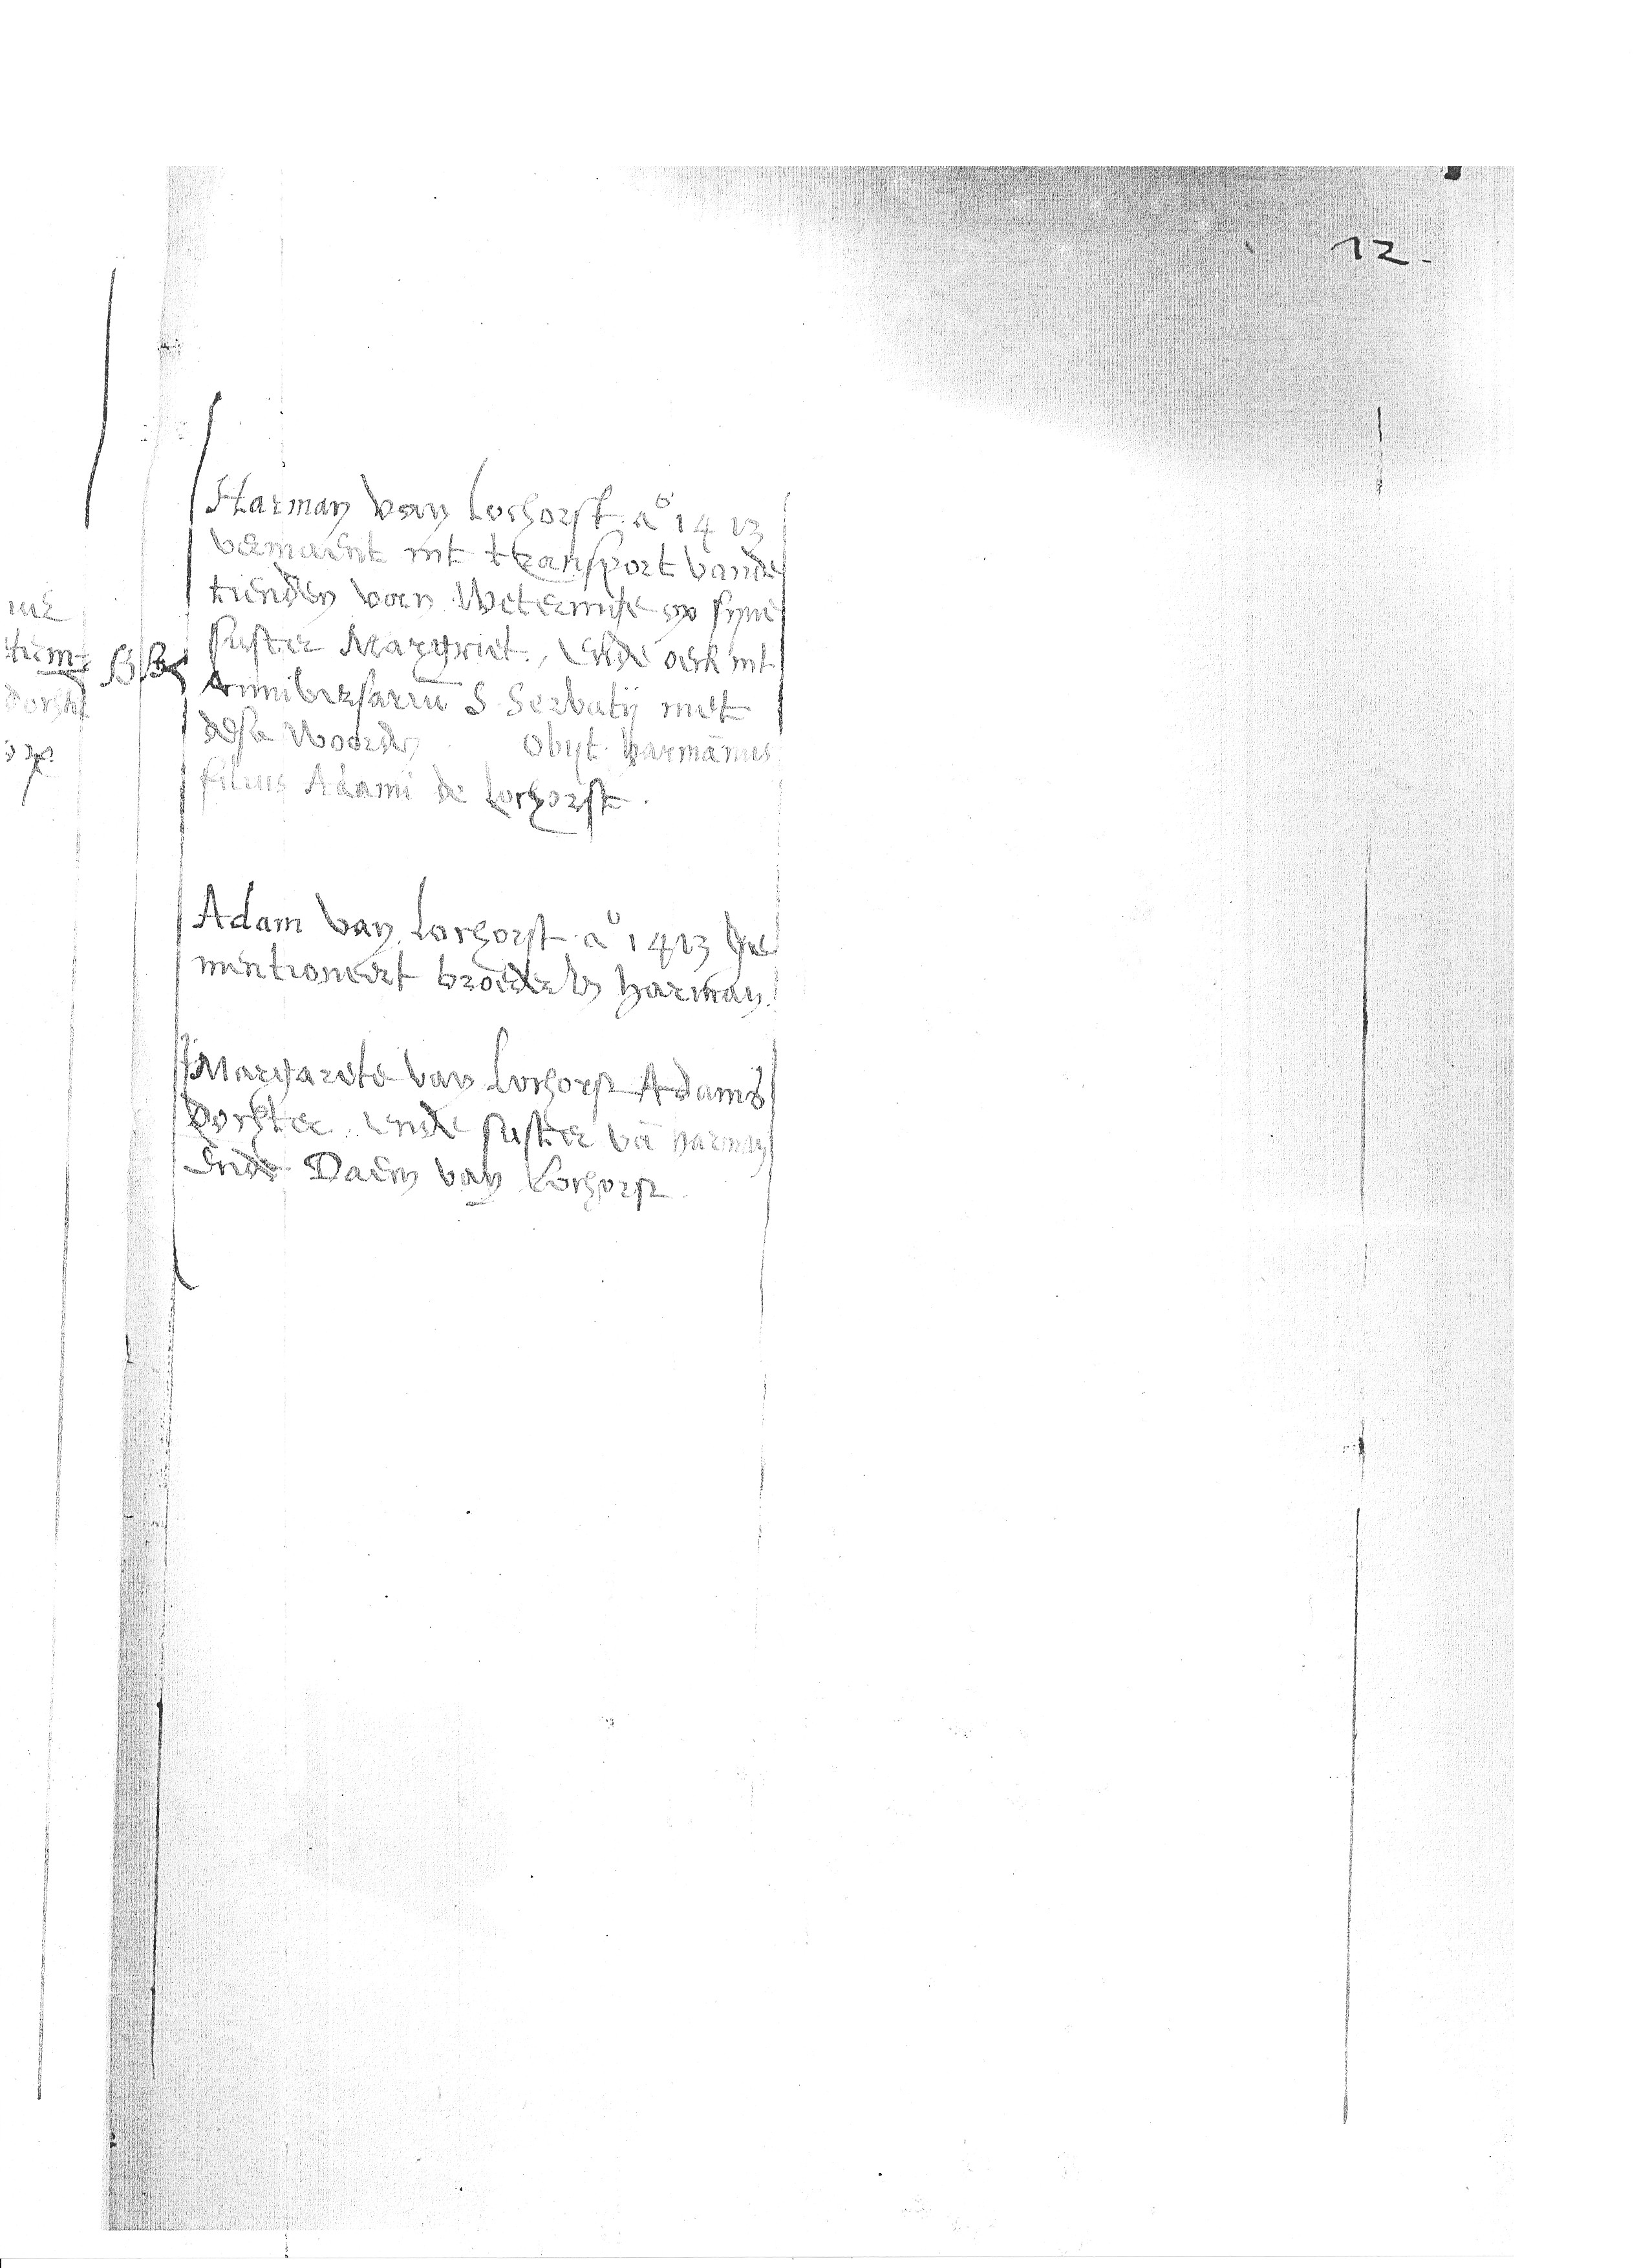 12.
Harman van Lochorst a° 1413
vermaent int transport vande
tienden van Weternisse op syne
suster Margriet, Ende oeck int
Anniversariu S Servatij met
dese Woorden Obijt harmānus
filius Adami de Lochorst.
Adam van Lochorst a° 1413 ge
mentioneert broeder van harman.
Margarete van Lochorst Adams
dochter, ende suster vā harman
Ende Daem van Lochorst.